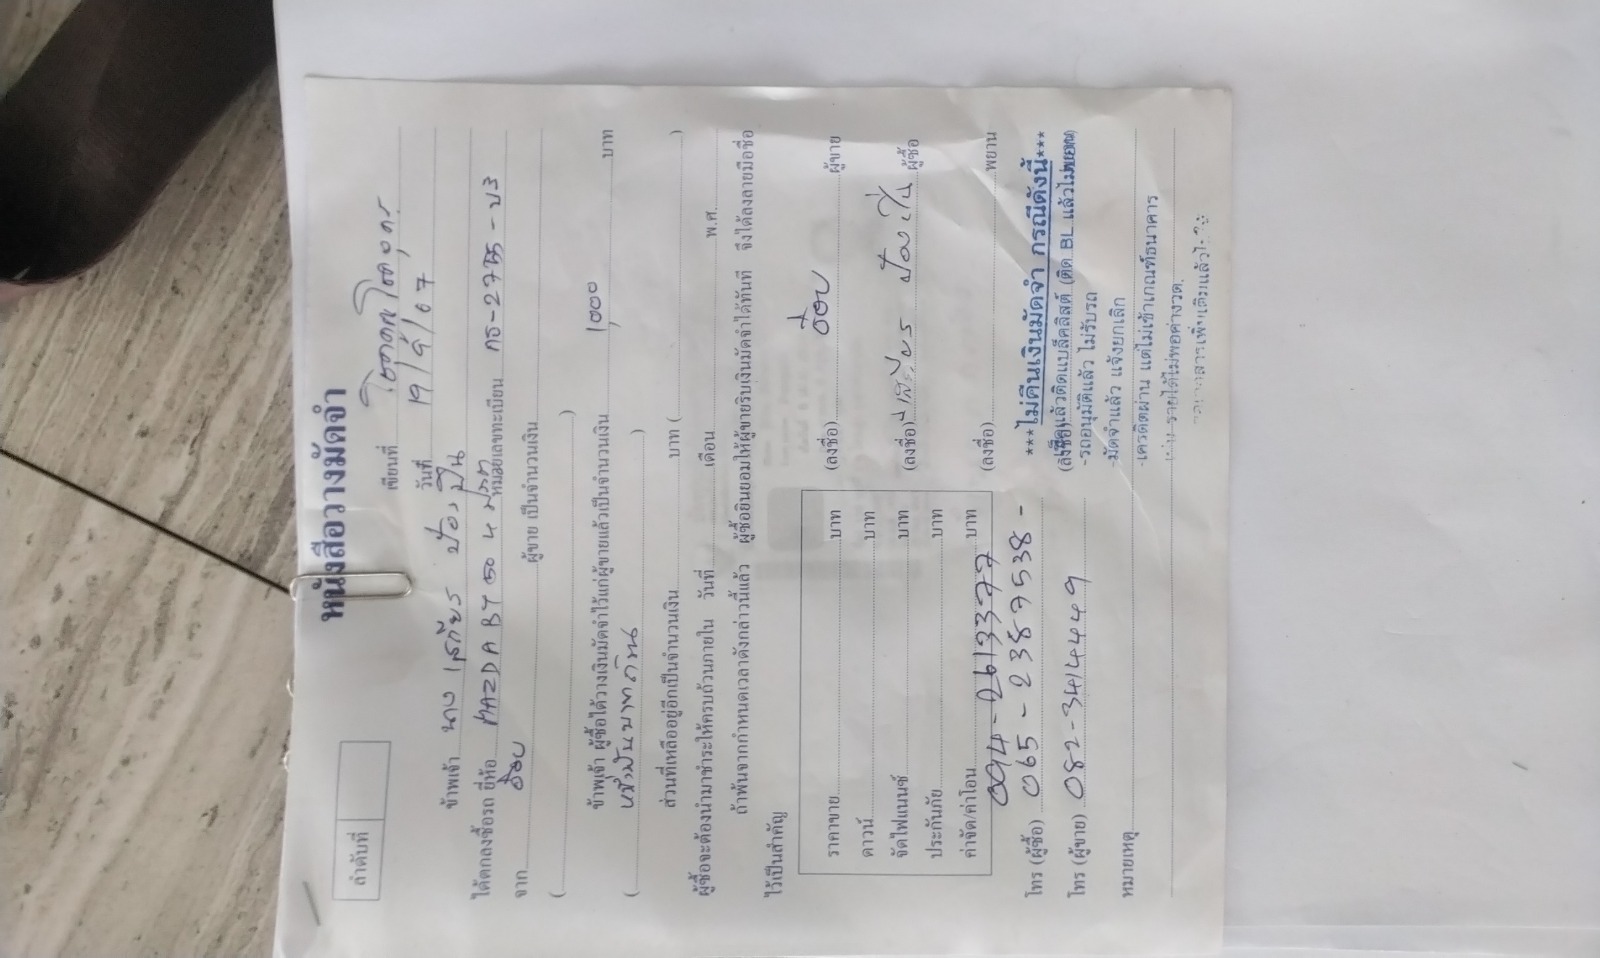 หนังสือวางมัดจำ
ลำดับที่
เขียนที่
วันที่ 19/ /67
ข้าพเจ้า นาง
ได้ตกลงซื้อรถ ยี่ห้อ MAZDA BT 50 4 หมายเลขทะเบียน
จาก ผู้ขาย เป็นจำนวนเงิน
( )
ข้าพเจ้า ผู้ซื้อได้วางเงินมัดจำไว้แก่ผู้ขายแล้วเป็นจำนวนเงิน 1,000 บาท
( หนึ่งพันบาทถ้วน )
ส่วนที่เหลืออยู่อีกเป็นจำนวนเงิน บาท ( )
ผู้ซื้อจะต้องนำมาชำระให้ครบถ้วนภายใน วันที่ เดือน พ.ศ.
ถ้าพ้นจากกำหนดเวลาดังกล่าวนี้แล้ว ผู้ซื้อยินยอมให้ผู้ขายริบเงินมัดจำได้ทันที จึงได้ลงลายมือชื่อ
ไว้เป็นสำคัญ
ราคาขาย บาท
ดาวน์ บาท
จัดไฟแนนซ์ บาท
ประกันภัย บาท
ค่าจัด/ค่าโอน บาท
(ลงชื่อ) ผู้ขาย
(ลงชื่อ) ผู้ซื้อ
(ลงชื่อ) พยาน
094-2619377
โทร (ผู้ซื้อ) 065-2387538-
โทร (ผู้ขาย) 082-3414449
หมายเหตุ
***ไม่คืนเงินมัดจำ กรณีดังนี้***
(ลงชื่อ) แล้วติดแบล็คลิสต์ (ติด BL แล้วไม่
-รถอนุมัติแล้ว ไม่รับรถ
-มัดจำแล้ว แจ้งยกเลิก
-เครดิตผ่าน แต่ไม่เข้าเกณฑ์ธนาคาร
รายได้ไม่พอค่างวด